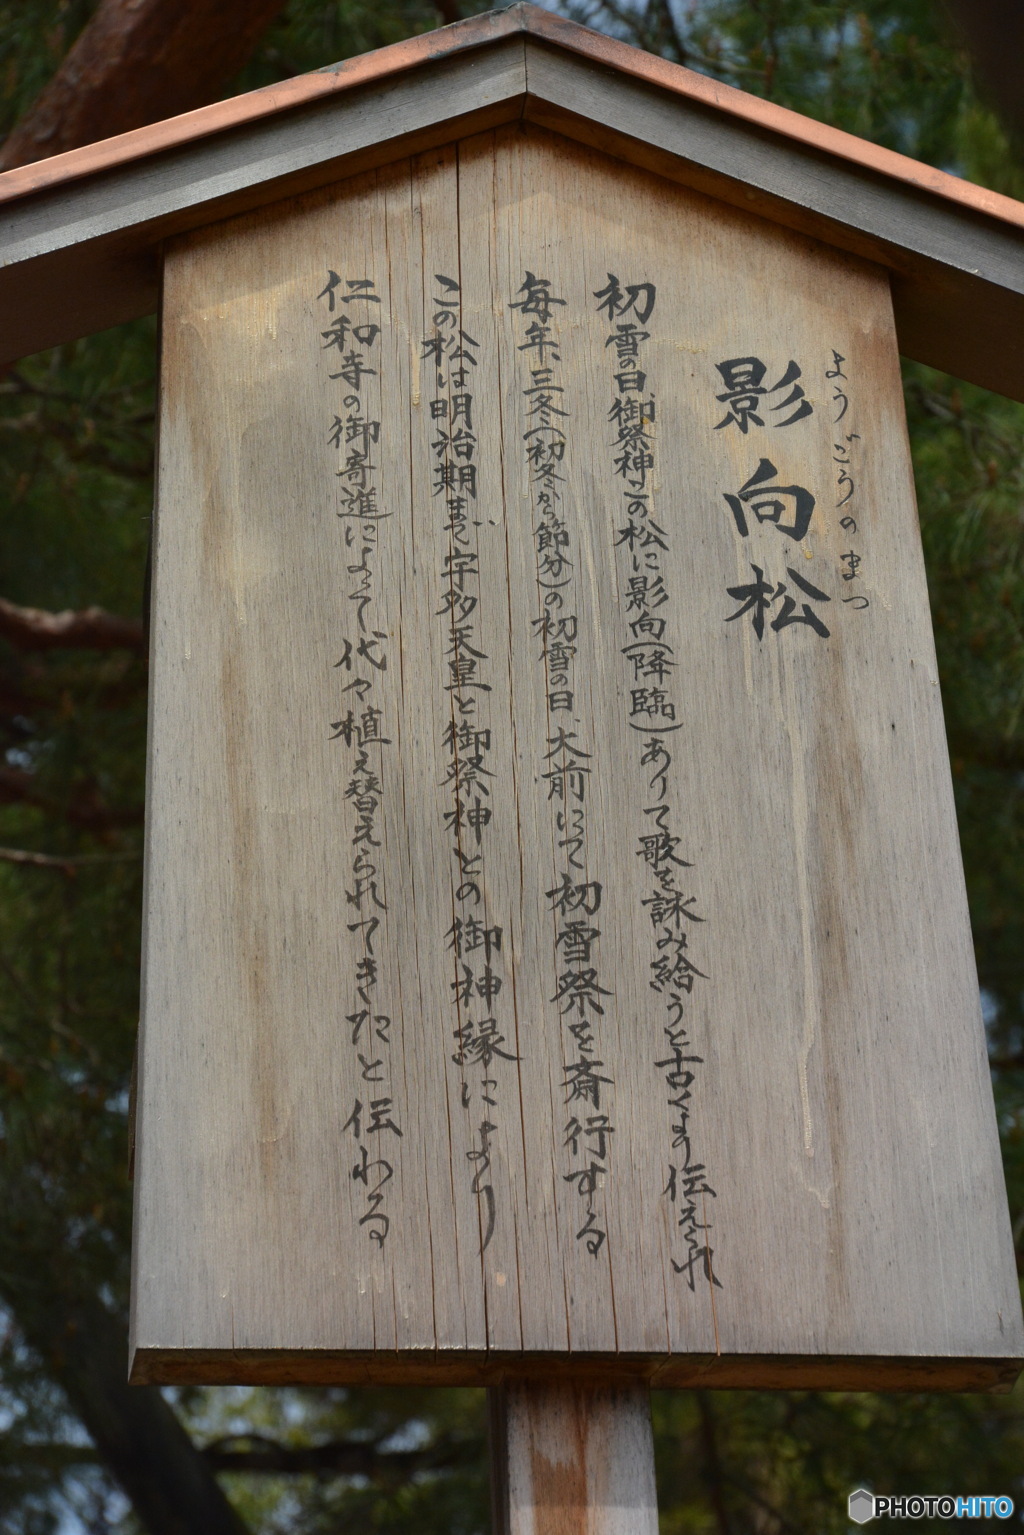 ようごうのまつ
影向松
初雪の日御祭神この松に影向(降臨)ありて歌を詠み給うと古くより伝えられ
毎年、三冬(初冬から節分)の初雪の日、大前にて初雪祭を斎行する
この松は明治期まで宇多天皇と御祭神との御神縁により
仁和寺の御寄進によって代々植え替えられてきたと伝わる
PHOTOHITO